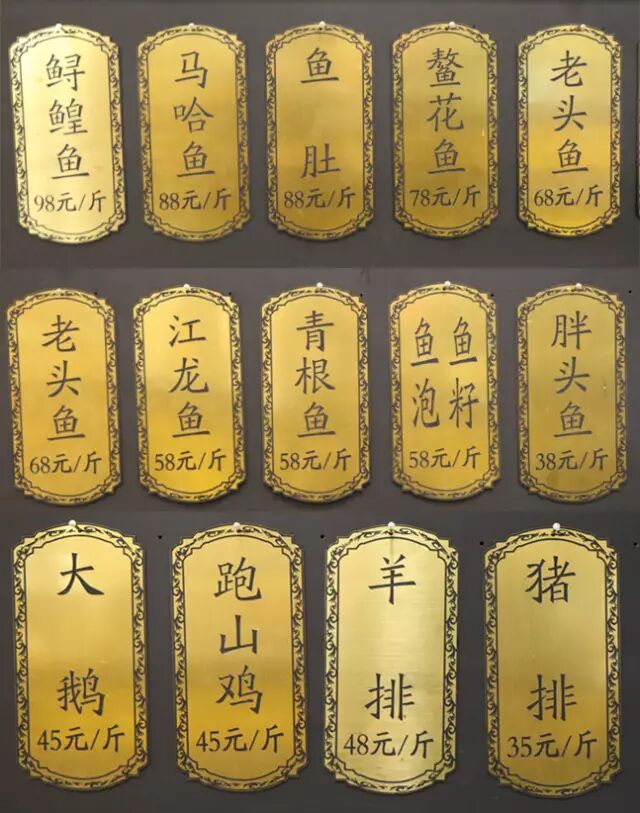 鲟鳇鱼
98元/斤
马哈鱼
88元/斤
鱼肚
88元/斤
鳌花鱼
78元/斤
老头鱼
68元/斤
老头鱼
68元/斤
江龙鱼
58元/斤
青根鱼
58元/斤
鱼泡
鱼籽
58元/斤
胖头鱼
38元/斤
大鹅
45元/斤
跑山鸡
45元/斤
羊排
48元/斤
猪排
35元/斤